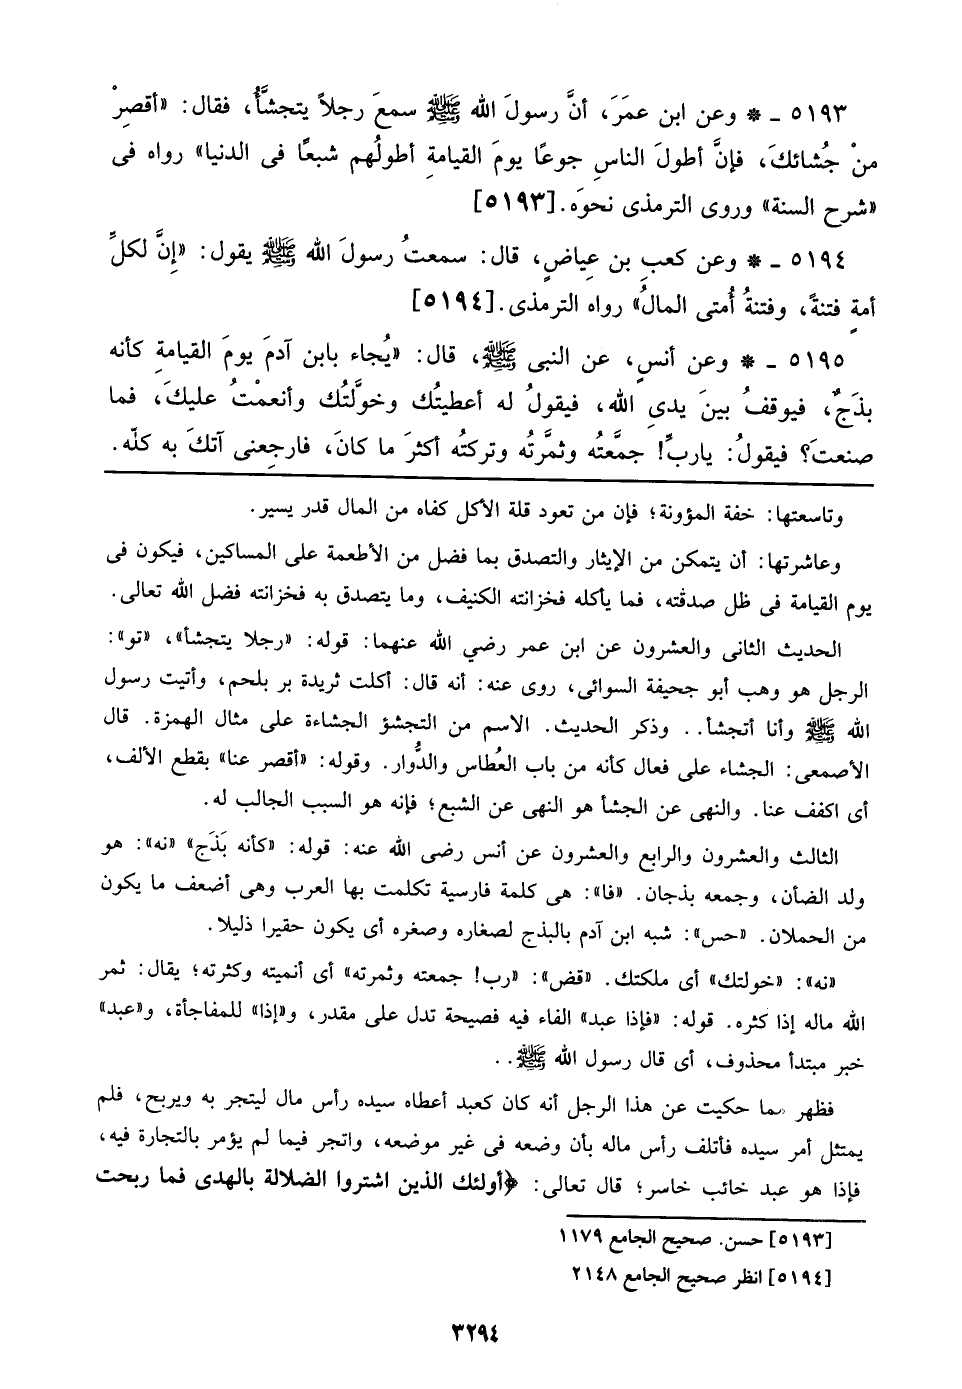 ٥١٩٣ ـ * وعن ابن عمَرَ، أنَّ رسولَ الله ﷺ سمعَ رجلاً يتجشَّأُ، فقال: «أقصِرْ
منْ جُشائكَ، فإنَّ أطولَ الناسِ جوعًا يومَ القيامةِ أطولُهم شبعًا فى الدنيا» رواه فى
«شرح السنة» وروى الترمذى نحوَه. [٥١٩٣]
٥١٩٤ ـ * وعن كعبِ بن عِياضٍ، قال: سمعتُ رسولَ الله ﷺ يقول: «إِنَّ لكلِّ
أمةٍ فتنةً، وفتنةُ أُمتى المالُ» رواه الترمذى. [٥١٩٤]
٥١٩٥ ـ * وعن أنسٍ، عن النبى ﷺ، قال: «يُجاء بابن آدمَ يومَ القيامةِ كأنه
بذَجٌ، فيوقفُ بينَ يدىِ الله، فيقولُ له أعطيتُك وخوَّلتُك وأنعمْتُ عليكَ، فما
صنعتَ؟ فيقولُ: ياربِّ! جمَّعتُه وثمَّرتُه وتركتُه أكثرَ ما كانَ، فارجِعنى آتكَ به كلّه.
وتاسعتها: خفة المؤونة؛ فإن من تعود قلة الأكل كفاه من المال قدر يسير.
وعاشرتها: أن يتمكن من الإيثار والتصدق بما فضل من الأطعمة على المساكين، فيكون فى
يوم القيامة فى ظل صدقته، فما يأكله فخزانته الكنيف، وما يتصدق به فخزانته فضل الله تعالى.
الحديث الثانى والعشرون عن ابن عمر رضي الله عنهما: قوله: «رجلا يتجشأ»، «تو»:
الرجل هو وهب أبو جحيفة السوائى، روى عنه: أنه قال: أكلت ثريدة بر بلحم، وأتيت رسول
الله ﷺ وأنا أتجشأ.. وذكر الحديث. الاسم من التجشؤ الجشاءة على مثال الهمزة. قال
الأصمعى: الجشاء على فعال كأنه من باب العُطاس والدُّوار. وقوله: «أقصر عنا» بقطع الألف،
أى اكفف عنا. والنهى عن الجشأ هو النهى عن الشبع؛ فإنه هو السبب الجالب له.
الثالث والعشرون والرابع والعشرون عن أنس رضى الله عنه: قوله: «كأنه بَذَج» «نه»: هو
ولد الضأن، وجمعه بذجان. «فا»: هى كلمة فارسية تكلمت بها العرب وهى أضعف ما يكون
من الحملان. «حس»: شبه ابن آدم بالبذج لصغاره وصغره أى يكون حقيرا ذليلا.
«نه»: «خولتك» أى ملكتك. «قض»: «رب! جمعته وثمرته» أى أنميته وكثرته؛ يقال: ثمر
الله ماله إذا كثره. قوله: «فإذا عبد» الفاء فيه فصيحة تدل على مقدر، و«إذا» للمفاجأة، و«عبد»
خبر مبتدأ محذوف، أى قال رسول الله ﷺ..
فظهر مما حكيت عن هذا الرجل أنه كان كعبد أعطاه سيده رأس مال ليتجر به ويربح، فلم
يمتثل أمر سيده فأتلف رأس ماله بأن وضعه فى غير موضعه، واتجر فيما لم يؤمر بالتجارة فيه،
فإذا هو عبد خائب خاسر؛ قال تعالى: ﴿أولئك الذين اشتروا الضلالة بالهدى فما ربحت
[٥١٩٣] حسن. صحيح الجامع ١١٧٩
[٥١٩٤] انظر صحيح الجامع ٢١٤٨
٣٢٩٤